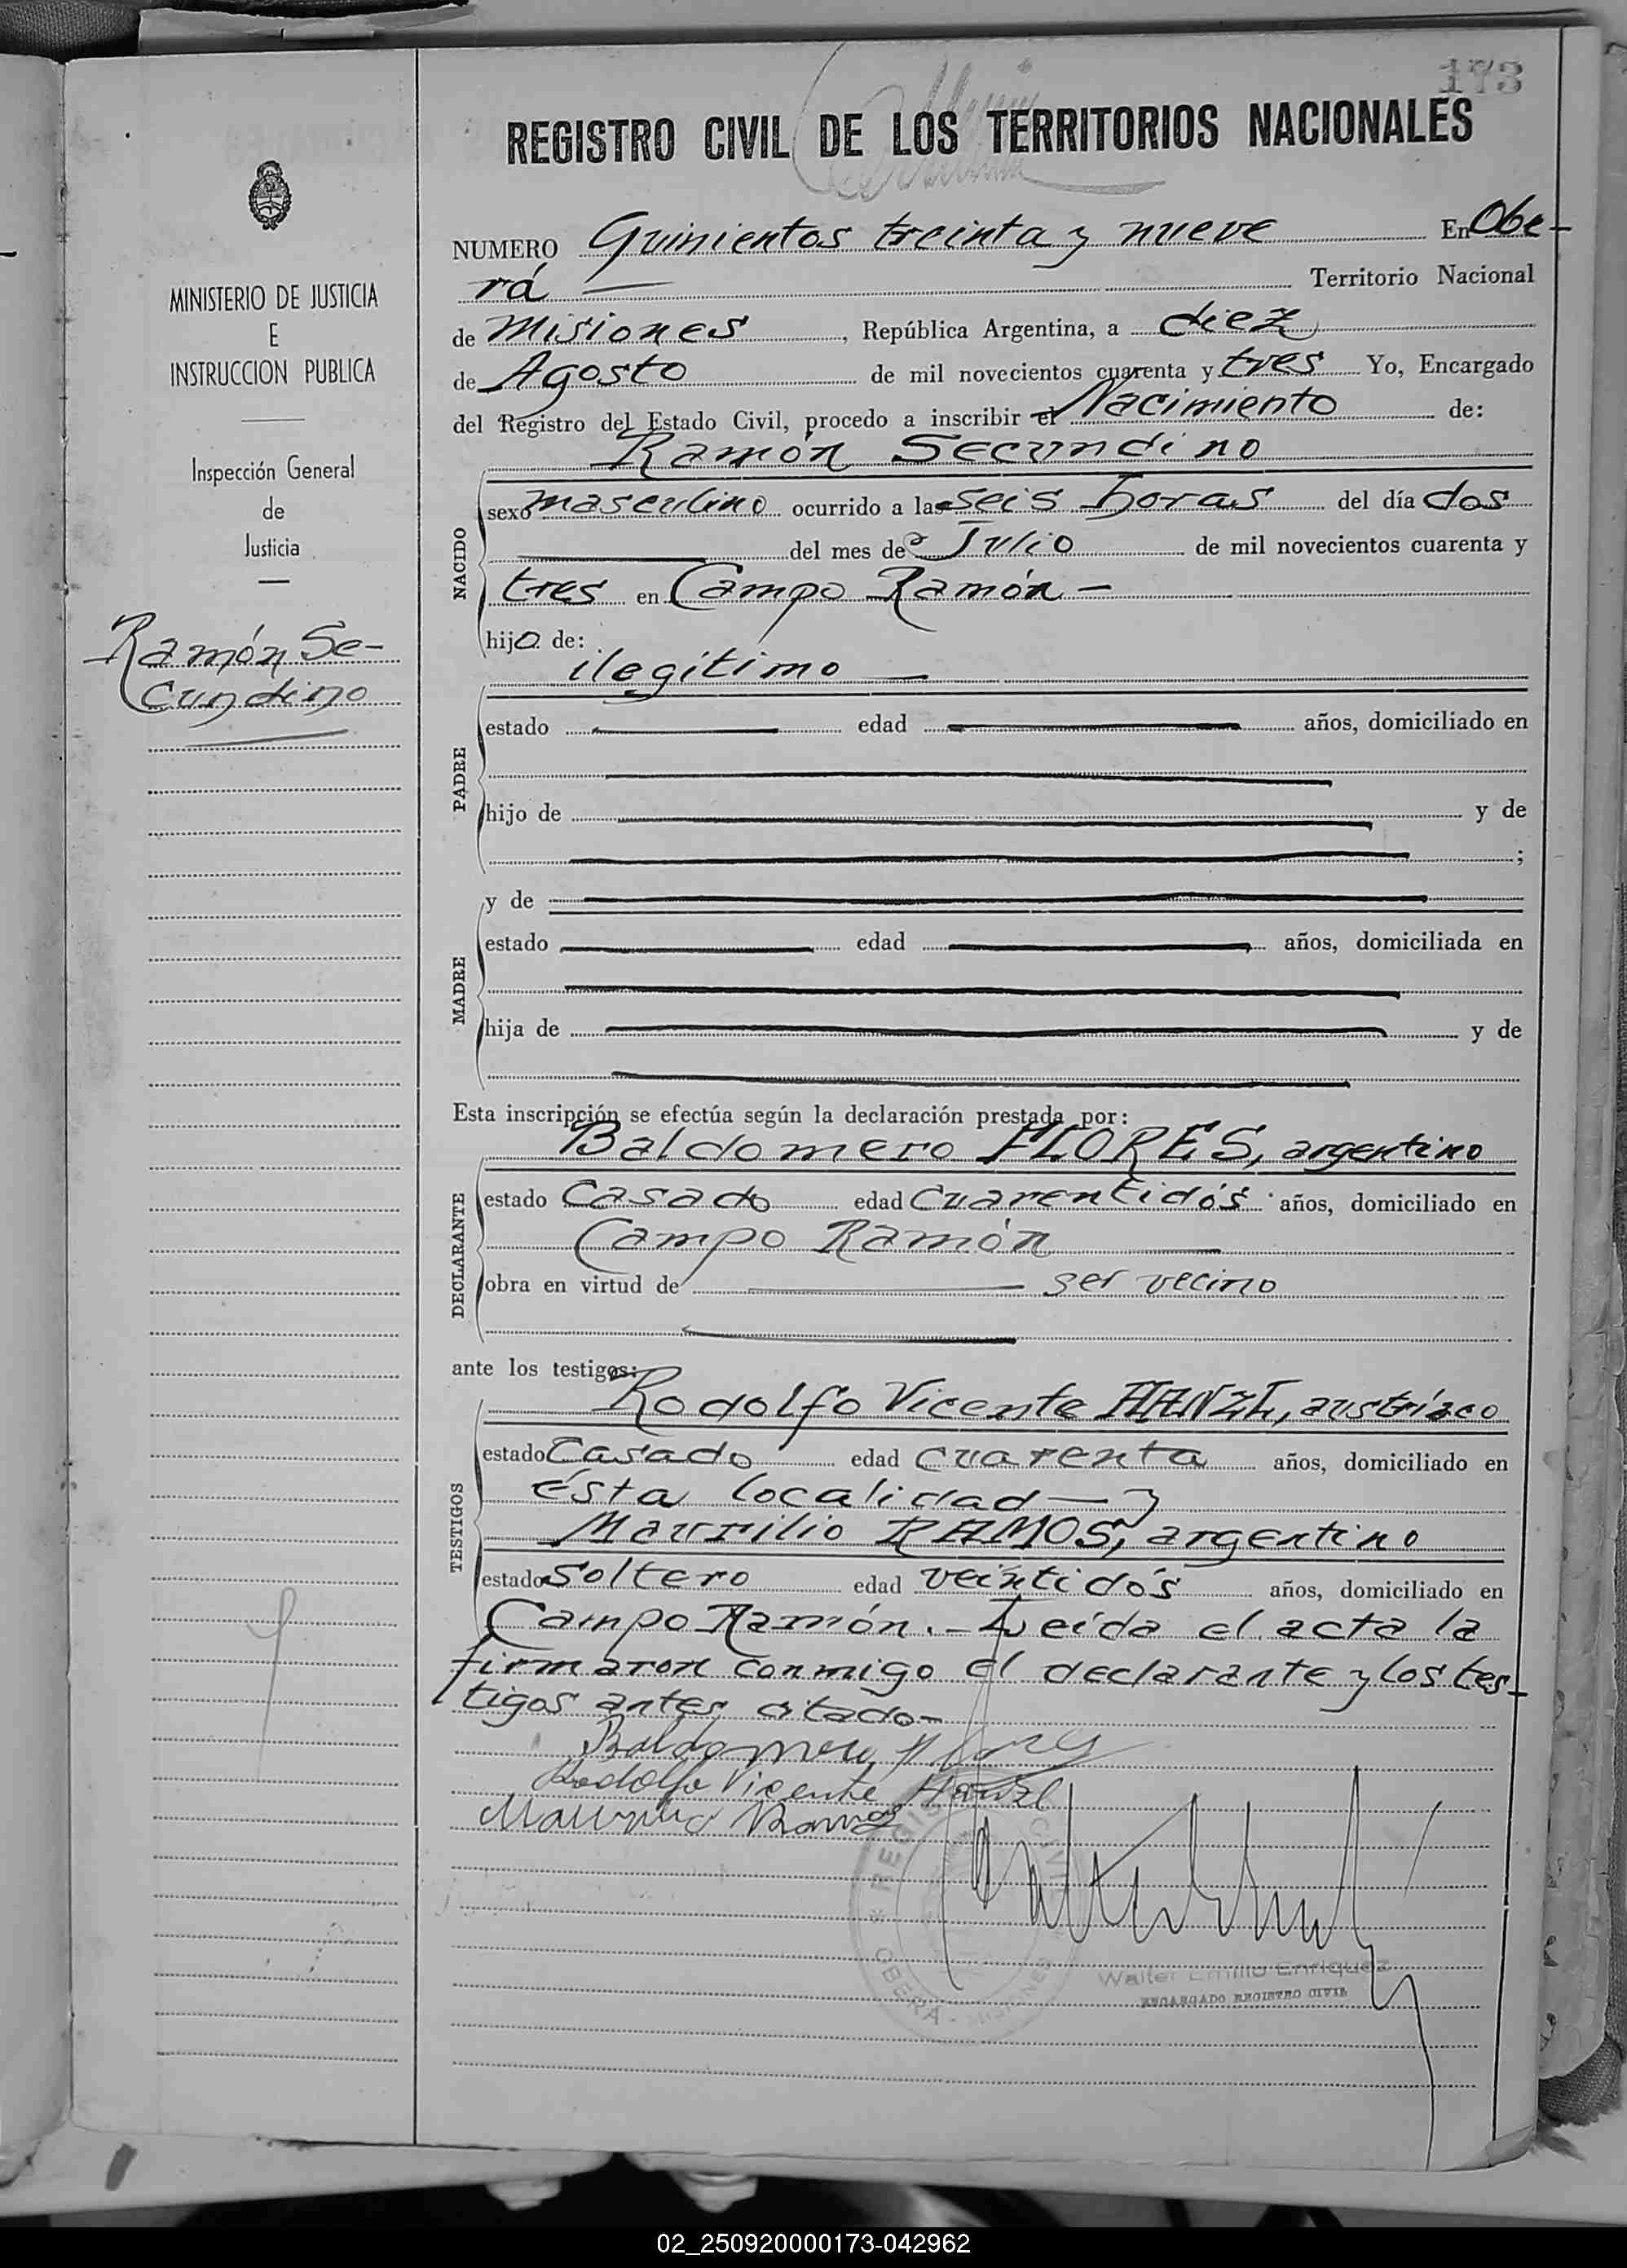 173
REGISTRO CIVIL DE LOS TERRITORIOS NACIONALES
MINISTERIO DE JUSTICIA
E
INSTRUCCION PUBLICA
Inspección General
de
Justicia
Ramón Se-
cundino
NUMERO Quinientos treinta y nueve En Obe-
rá — Territorio Nacional
de Misiones, República Argentina, a diez
de Agosto de mil novecientos cuarenta y tres Yo, Encargado
del Registro del Estado Civil, procedo a inscribir el Nacimiento de:
Ramón Secundino
NACIDO
sexo masculino ocurrido a las seis horas del día dos
del mes de Julio de mil novecientos cuarenta y
tres en Campo Ramón -
hijo de:
ilegítimo —
PADRE
estado edad años, domiciliado en
hijo de y de
;
y de
MADRE
estado edad años, domiciliada en
hija de y de
Esta inscripción se efectúa según la declaración prestada por:
Baldomero FLORES, argentino
DECLARANTE
estado Casado edad cuarentidós años, domiciliado en
Campo Ramón —
obra en virtud de — ser vecino
ante los testigos:
Rodolfo Vicente HANZL, austríaco
TESTIGOS
estado Casado edad cuarenta años, domiciliado en
ésta localidad — y
Maurilio RAMOS, argentino
estado Soltero edad veintidós años, domiciliado en
Campo Ramón.- Leída el acta la
firmaron conmigo el declarante y los tes-
tigos antes citado-
Baldomero Flores
Rodolfo Vicente Hanzl
Maurilio Ramos
REGISTRO CIVIL
* OBERÁ - MISIONES
Walter Emilio Enriquez
ENCARGADO REGISTRO CIVIL
02_250920000173-042962